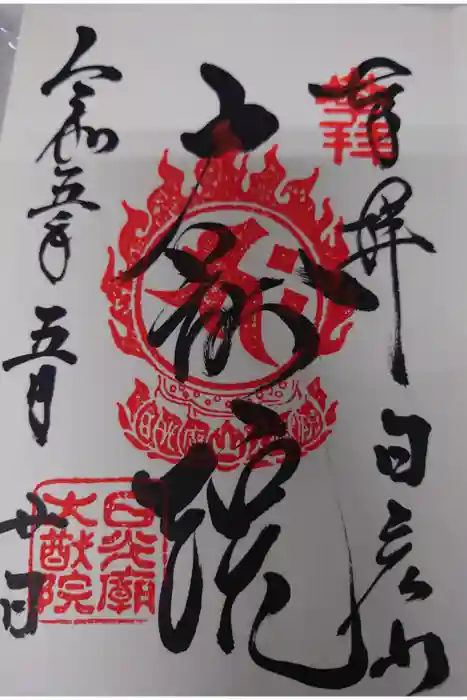 奉拝
日光山
大猷院
令和五年
五月
廿日
奉拝
日光山
日光廟
大猷院